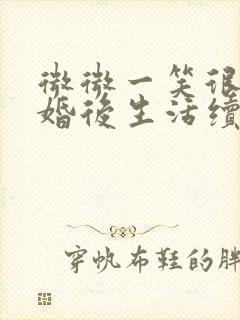 微微一笑很
婚後生活續
穿帆布鞋的胖